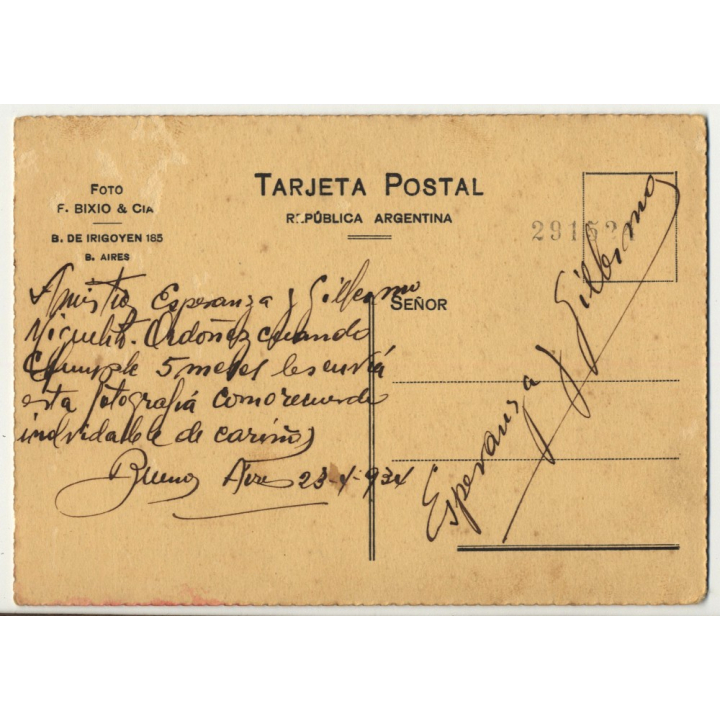 FOTO
F. BIXIO & CIA
B. DE IRIGOYEN 185
B. AIRES
TARJETA POSTAL
REPÚBLICA ARGENTINA
29152
SEÑOR
Esperanza y Gilbermo
Miguelito Ordoñez cuando
Cumple 5 meses les envia
esta fotografiá como recuerdo
inolvidable de cariño,
Buenos Aires 23-X-934
Esperanza y Gilbermo